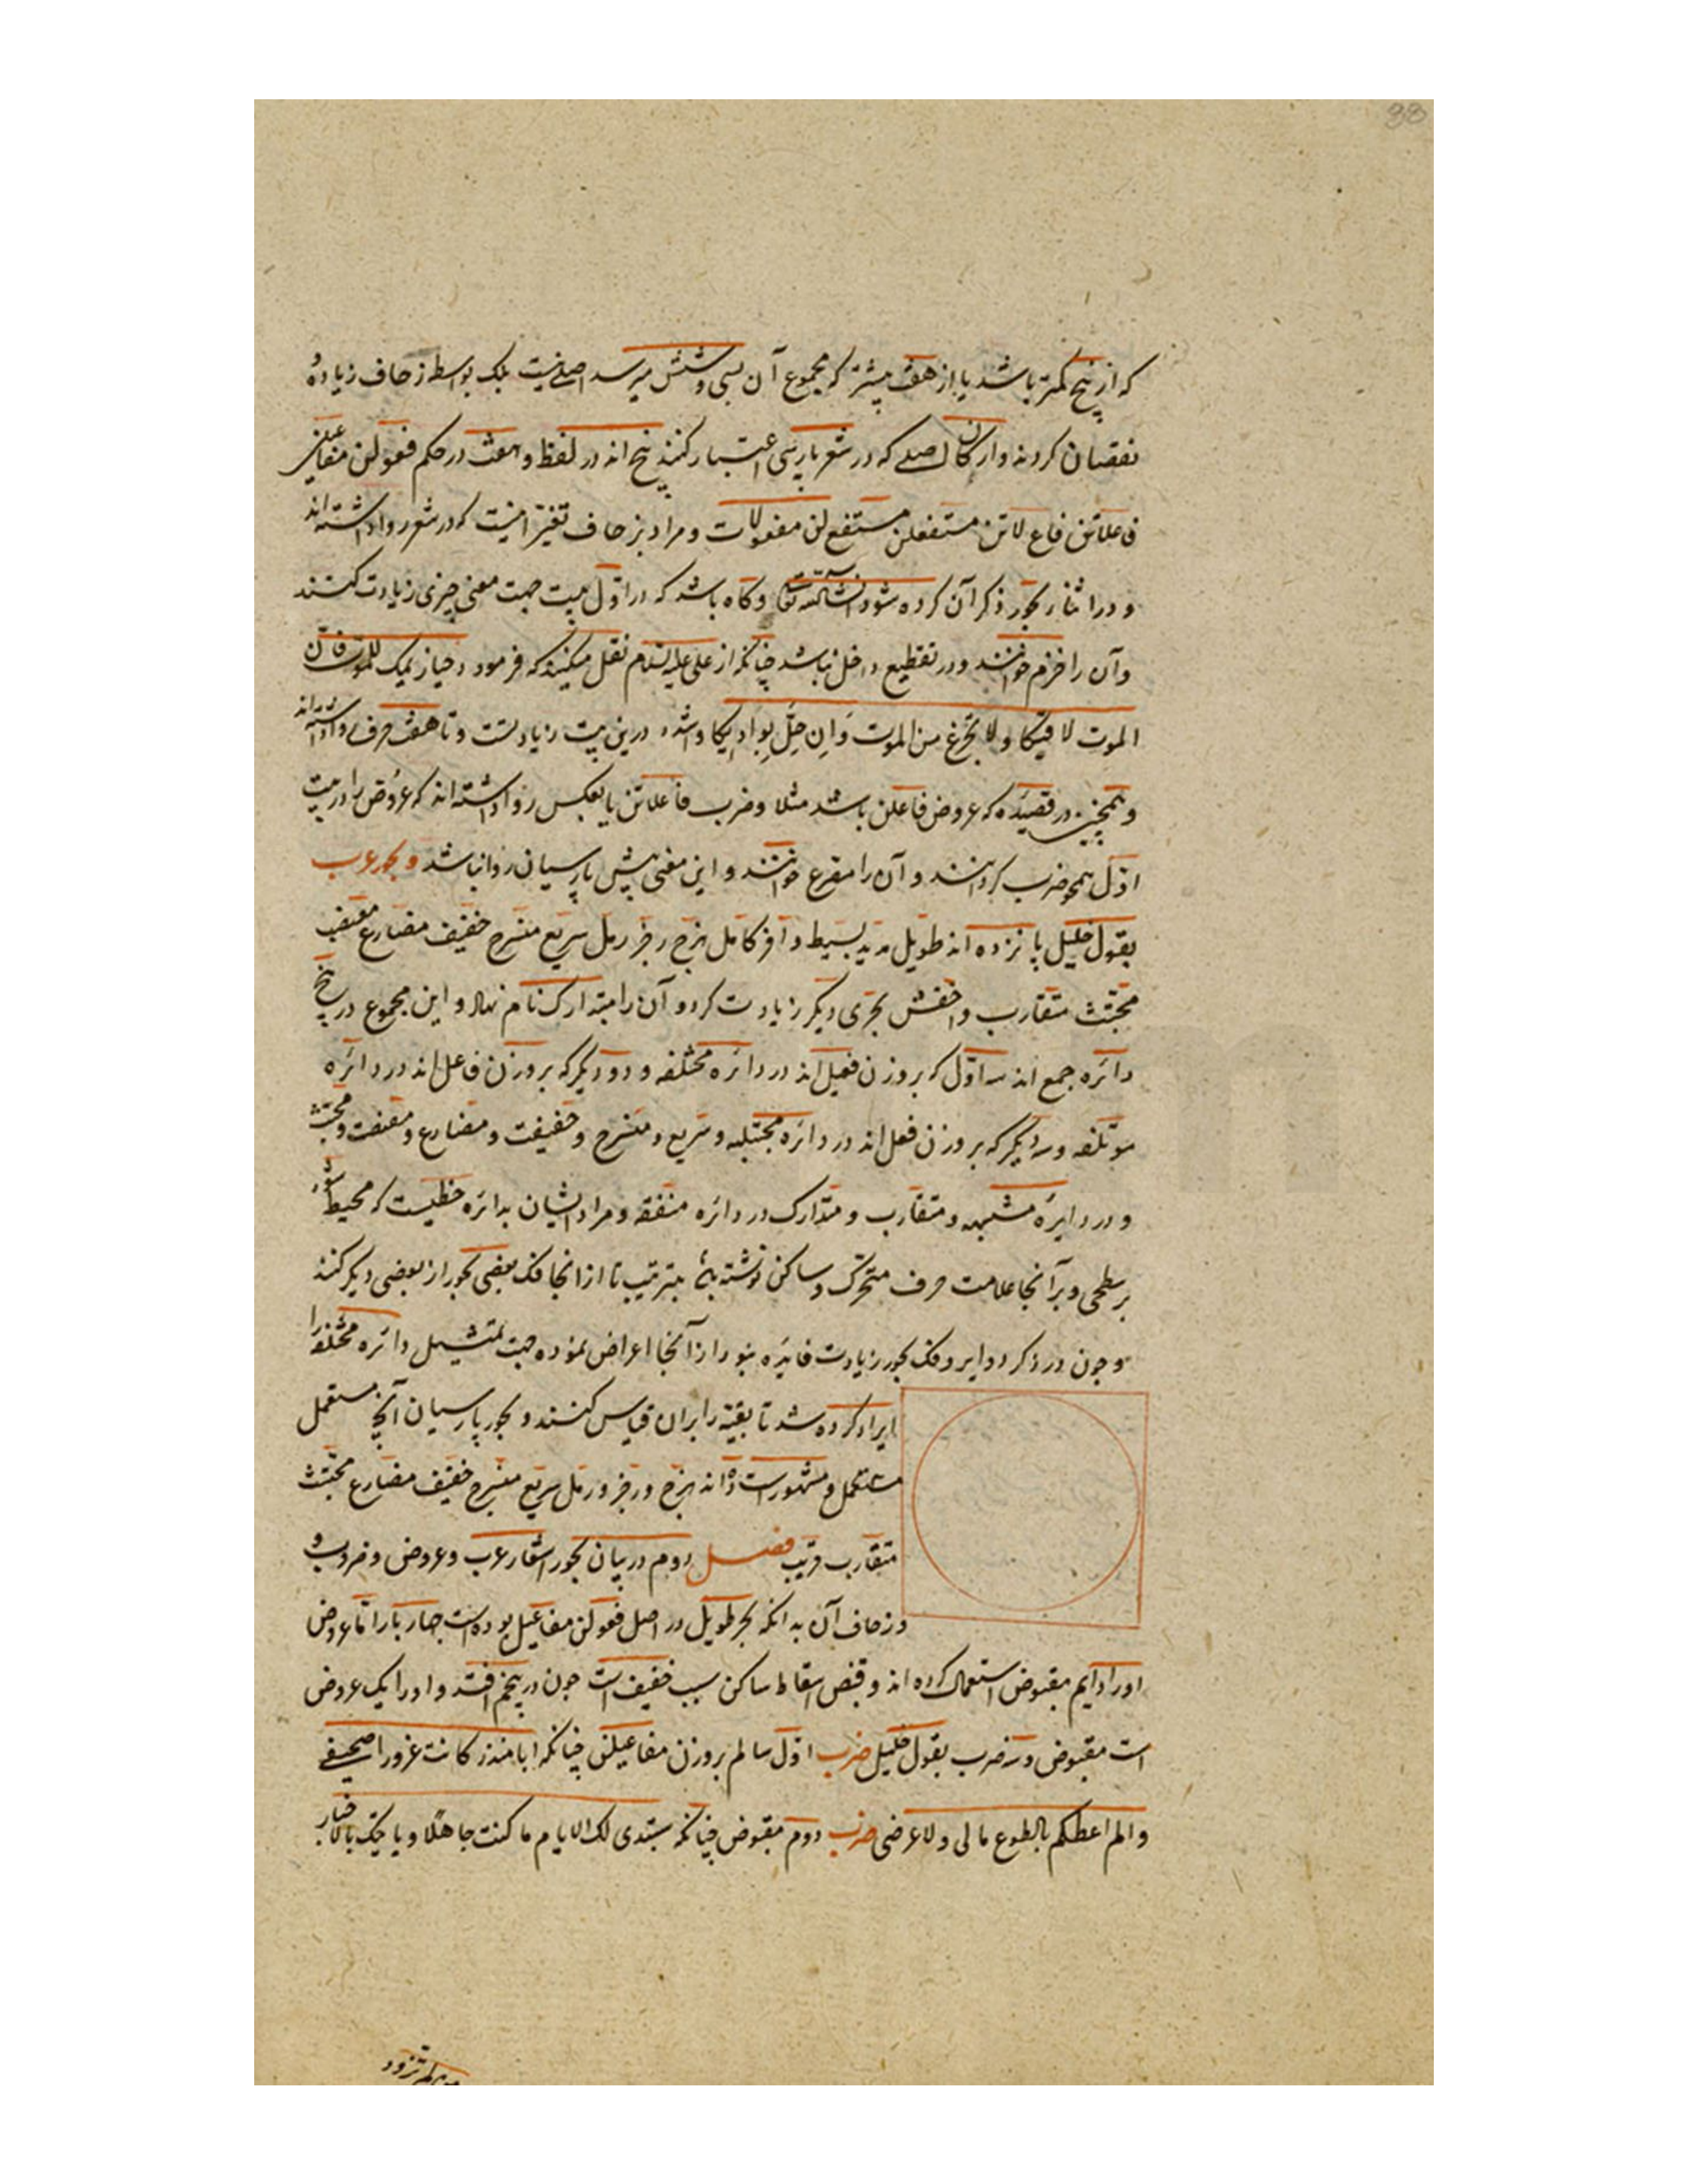 که از پنج کمتر باشد یا از هفت بیشتر که مجموع آن بسی و شش میرسد اصلی نیست بلک بواسطه زحاف زیاده و
نقصان کرده اند وارکان اصلی که در شعر پارسی اعتبار کنند پنج اند در لفظ و هشت در حکم فعولن مفاعیلن
فاعلاتن فاع لاتن مستفعلن مستفع لن مفعولات و مراد بزحاف تغیّر اینست که در شعر روا داشته اند
و در اثنا بحور ذکر آن کرده شود انشاالله تعا وکاه باشد که در اوّل بیت جهت معنی چیزی زیادت کنند
وآن را خزم خوانند و در تقطیع داخل نباشد چنانکه از علی علیه السلام نقل میکنند که فرمود حیازیمک للموت فان
الموت لاقیکا ولا تجزع من الموت وَاِن حَلَّ بِوادِیکا و اشدد درین بیت زیادتست و تا هفت حرف روا داشته اند
و همچنین در قصیده که عروض فاعلن باشد مثلا وضرب فاعلاتن یا بعکس روا داشته اند که عروض را در بیت
اوّل همچو ضرب کردانند و آن را مصرع خوانند و این معنی پیش پارسیان روا نباشد و بحور عرب
بقول خلیل پانزده اند طویل مدید بسیط وافر کامل هزج رجز رمل سریع منسرح خفیف مضارع مقتضب
مجتث متقارب و اخفش بحری دیکر زیادت کرد و آن را متدارک نام نهاد و این مجموع در پنج
دائره جمع اند سه اوّل که بروزن فعیل اند در دائره مختلفه و دو دیکر که بر وزن فاعل اند در دائره
موتلفه و سه دیکر که بر وزن فعل اند در دائره مجتلبه و سریع و منسرح و خفیف و مضارع و مقتضب و مجتث
و در دایره مشتبهه و متقارب و متدارک در دائره متفقه و مراد ایشان بدائره خطیست که محیط شود
بر سطحی و بر آنجا علامت حرف متحرک و ساکن نوشته بترتیب تا از انجا فک بعضی بحور از بعضی دیکر کنند
و چون در ذکر دوایر و فک بحور زیادت فایده نبود از آنجا اعراض نموده جهت تمثیل دائره مختلفه را
ایراد کرده شد تا بقیّه را بران قیاس کنند و بحور پارسیان آنچ مستعمل
مستعمل و مشهور است ده اند هزج و رجز و رمل سریع منسرح خفیف مضارع مجتث
متقارب قریب فصل دوم در بیان بحور اشعار عرب و عروض و ضروب و
و زحاف آن بدانکه بحر طویل در اصل فعولن مفاعیل بوده است چهار بار امّا عروض
او را دایم مقبوض استعمال کرده اند و قبض اسقاط ساکن سبب خفیف است چون در پنجم افتد و او را یک عروض
است مقبوض و سه ضرب بقول خلیل ضرب اوّل سالم بر وزن مفاعیلن چنانکه ابا منذر کانت غرورا صحیفتی
والم اعطکم بالطوع مالی ولا عرضی ضرب دوم مقبوض چنانکه ستبدی لک الایام ما کنت جاهلا ویاتیک بالاخبار
تزود